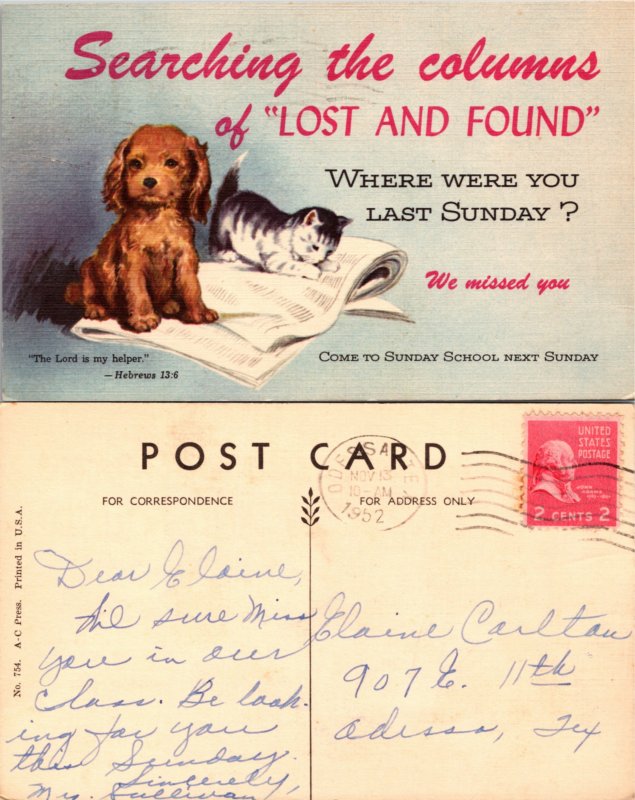 Searching the columns
of "LOST AND FOUND"
WHERE WERE YOU
LAST SUNDAY ?
We missed you
"The Lord is my helper."
— Hebrews 13:6
COME TO SUNDAY SCHOOL NEXT SUNDAY
POST CARD
FOR CORRESPONDENCE
FOR ADDRESS ONLY
ODESSA, TEX
NOV 13
10-AM
1952
UNITED
STATES
POSTAGE
JOHN
ADAMS
2 CENTS 2
No. 754. A-C Press. Printed in U.S.A.
Dear Elaine,
We sure Miss
you in our
class. Be look-
ing for you
this Sunday.
Sincerely,
Mrs. Sullivan
Elaine Carlton
907 E. 11th
Odessa, Tex